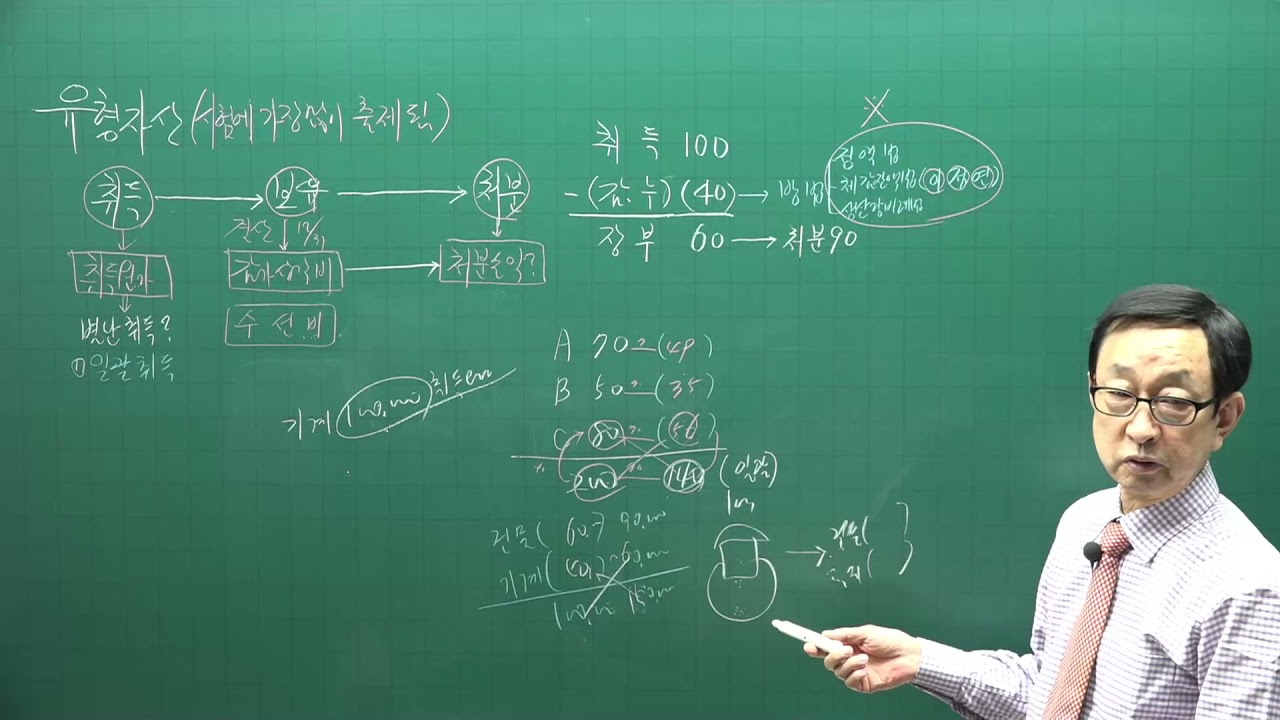 유형자산 (시험에 가장많이 출제됨)
취득 → 보유 → 처분
결산 12/31
취득원가
감가상각비 → 처분손익?
별난취득?
수선비
① 일괄취득
취득 100
- (감.누) (40) → 방법
장부 60 → 처분 90
※
정액법
체감잔액법 (이 정 연)
생산량비례법
기계 100,000 취득
A 70 (49)
B 50 (35)
C 80 (56)
200 140 (일괄)
건물( 60,) 90,000
기계( 40,) 60,000
100,000 150,000
건물(
토지(